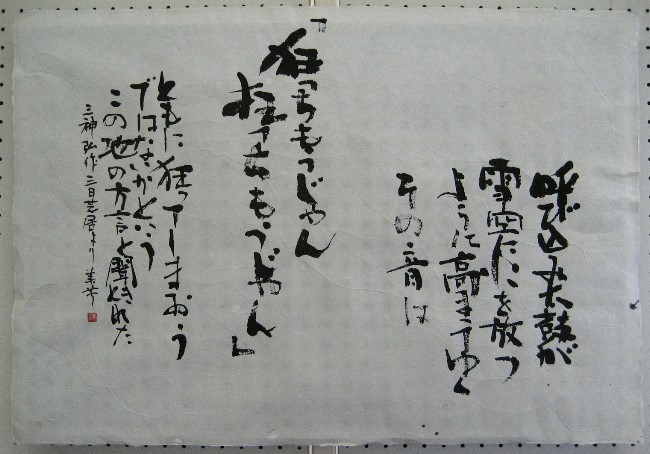 呼び込み太鼓が
雪空に を放つ
ように高まってゆく
その音は
「狂っちもうじゃん
狂っちもうじゃん」
ともに狂ってしまおう
ではないかという
この地の方言と聞きとれた
三神弘作 三日芝居より